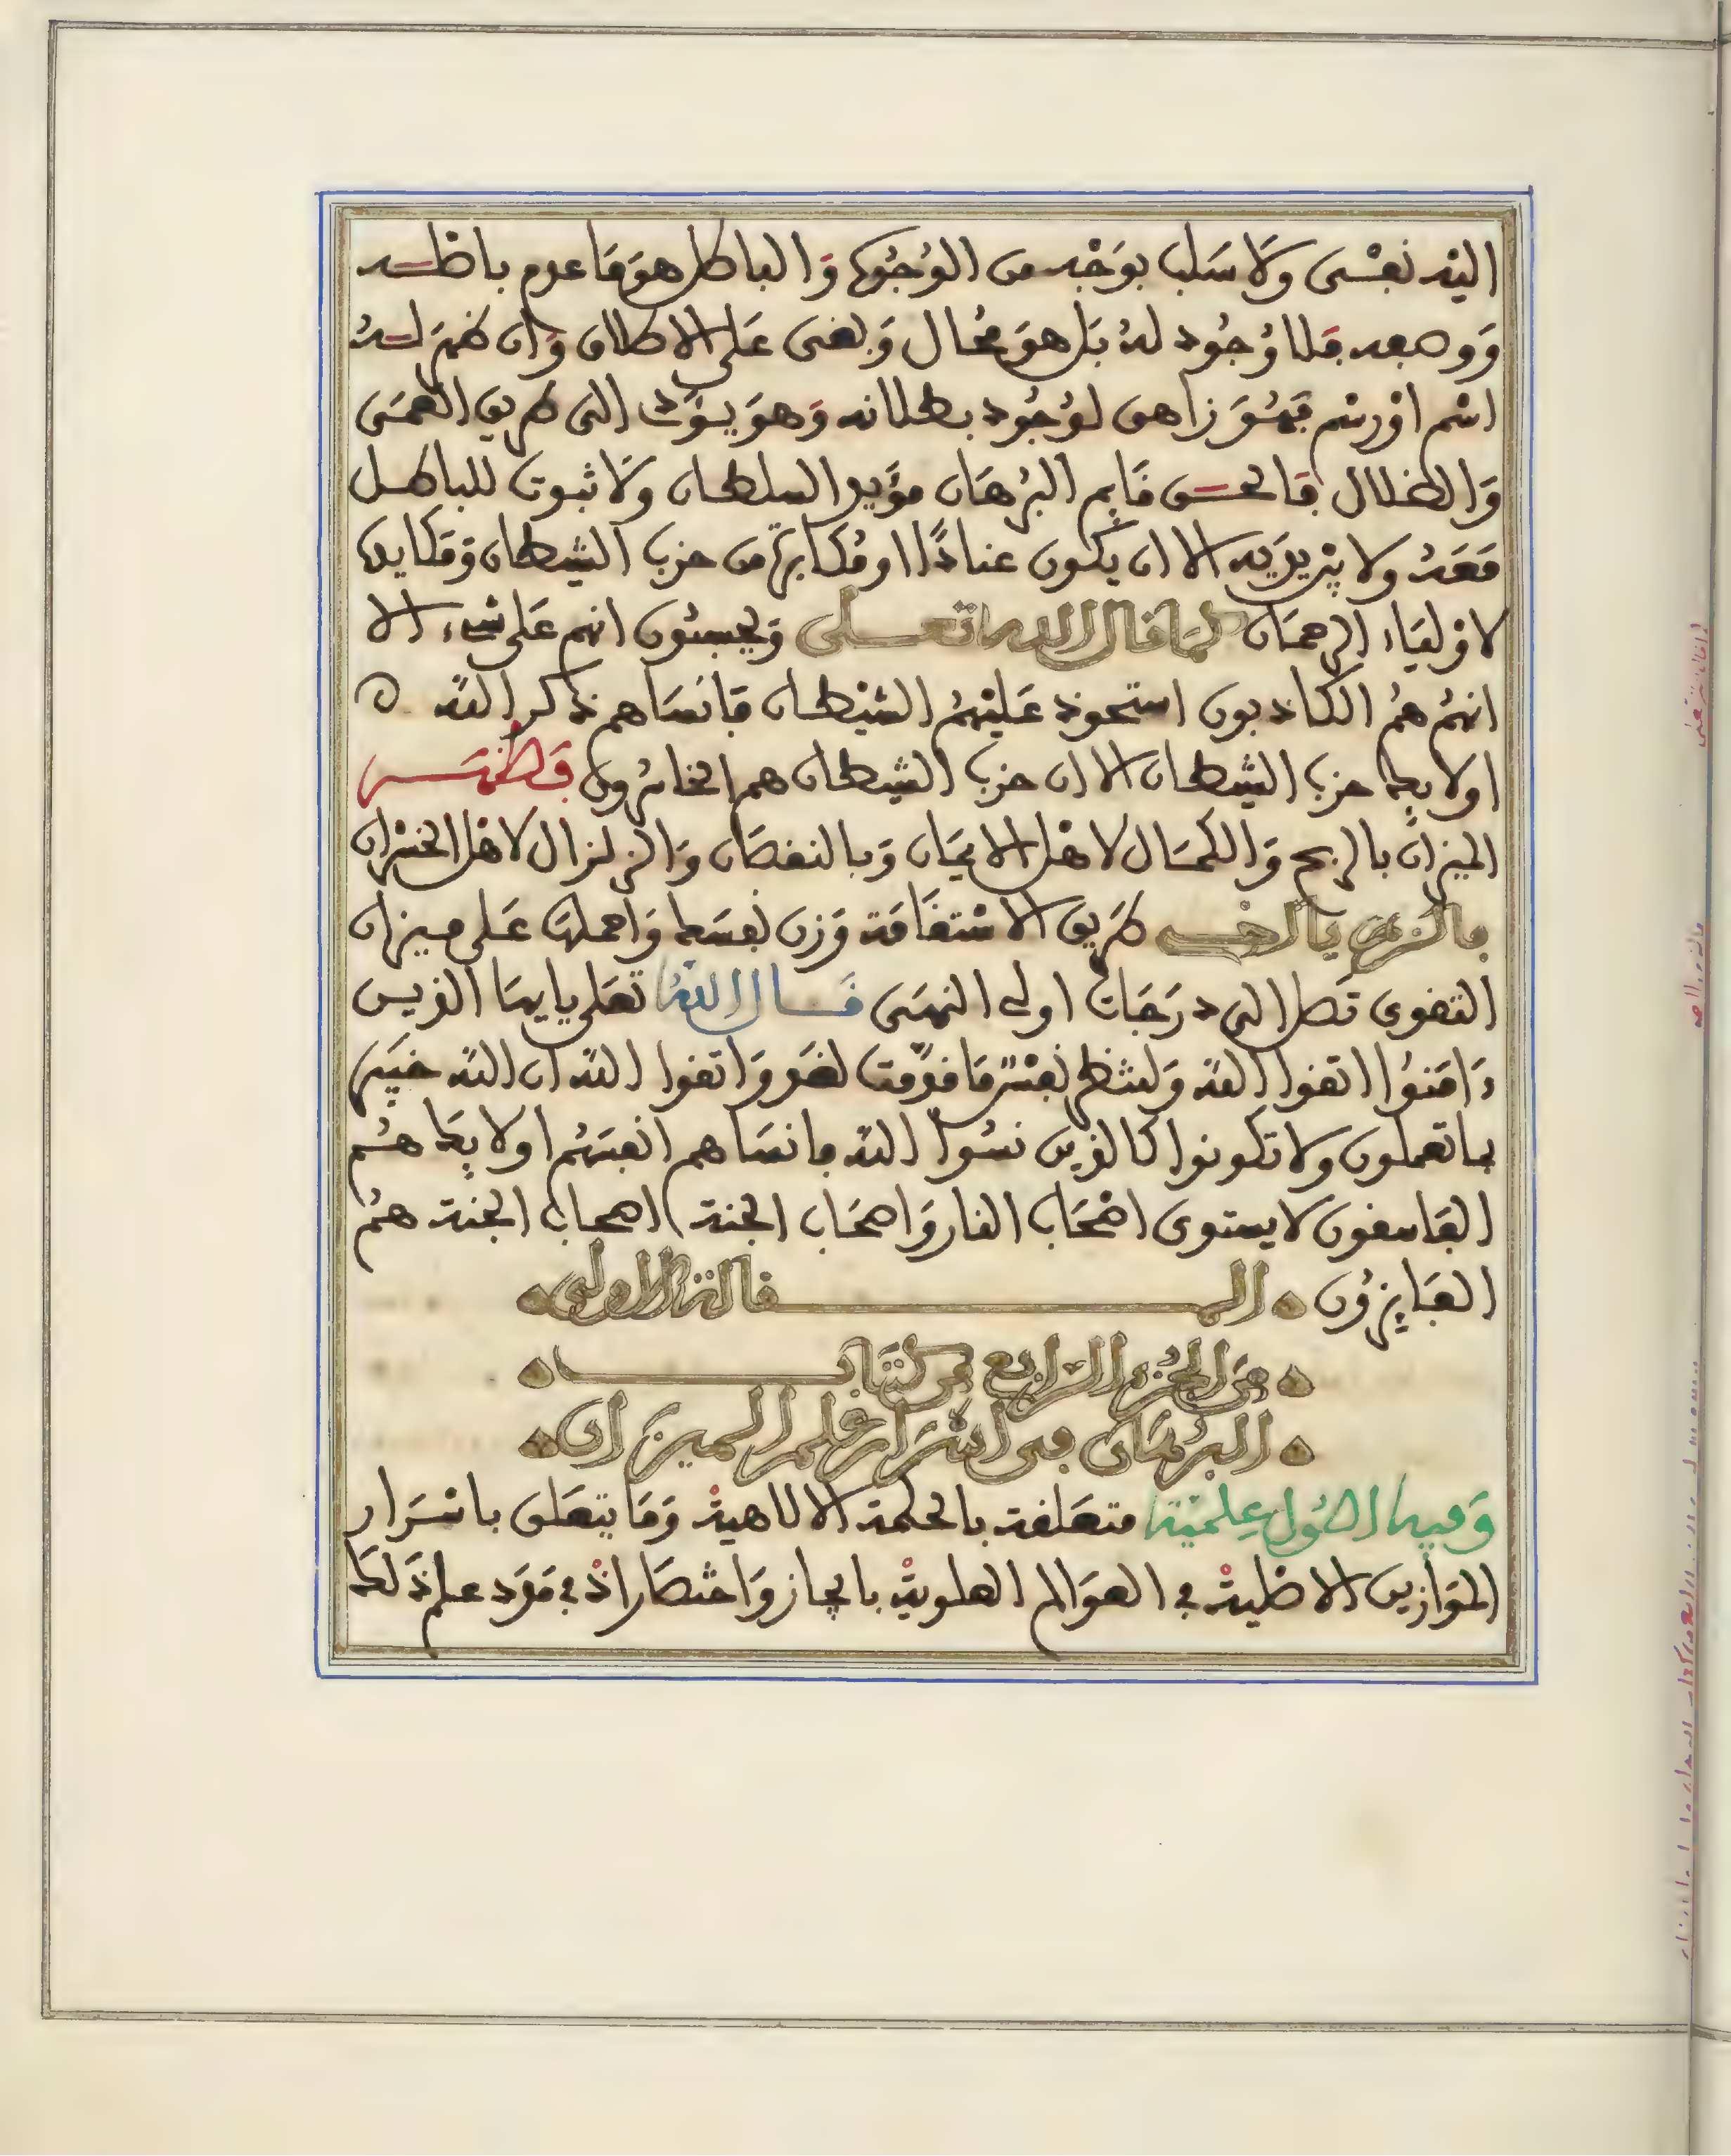 اليه نفسى وَلَا سَلب بوَجْه من الوُجُوه وَالباطل هوَ مَا عدم باصله
وَوصفه فلا وُجُود لهُ بَل هوَ محَال وَبفنى عَلى الاطلاق وَان ظهَر لهُ
اسْم اوْ رسْم فهُوَ زاهق لوُجُود بطلانه وَهوَ يؤَد الى طريق العمَى
وَالضلال فالحق قَايم البُرهَان مؤَيد السلطان وَلَا ثبوت للباطل
مَعَهُ ولا يزيد به الا ان يكون عنادًا او مُكابرة من حزب الشيطان وَمَكايده
لاوْليَاء الرحمَان كمَا قال الله تعلى وَيحسبُون انهم عَلى شىء الا
انهُم همُ الكاذبون استحوذ عَليْهمُ الشيْطان فَانسَاهم ذكر الله
اولايك حزب الشيْطان الا ان حزب الشيطان هم الخاسرون فَظهَر
الميزان بالربح وَالكمَال لاهْل الايمَان وَبالنقصَان وَالزلزال لاهل الخسْران
فالزم يا اخى طَريق الاسْتقَامَة وَزن نفسَك وَاحملهَا عَلى ميزان
التقوى تَصل الى درَجَات اولى النهَى قَال اللهُ تعَلى يايهَا الذين
ءَامَنُوا اتقوا الله وَلتنظر نفسٌ مَا قدَّمت لغَد وَاتقوا الله ان الله خبَير
بما تعملون ولا تكونوا كالذين نسُوا الله فانسَاهم انفسَهُم اولايكَ همُ
الفَاسقون لا يستوى اصْحَاب النار وَاصحَاب الجنة اصحاب الجنة همُ
الفَايزوُن المقالة الاولى
مِنَ الجُزء الرابع من كتَاب
البُرهَان فى اسْرَار علم الميزان
وَفيها اصُول عِلميَّة متعَلقة بالحكمة الالاهية وَمَا يتعَلق باسْرَار
الموَازين الاصْلية فى العوَالم العلوية بايجاز وَاختصَار اذ فى مَوَد علم ذَلكَ